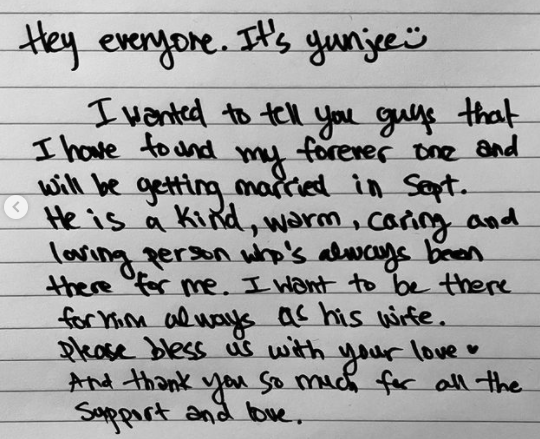 Hey everyone. It's yunjee☺
I wanted to tell you guys that
I have found my forever one and
will be getting married in Sept.
He is a kind, warm, caring and
loving person who's always been
there for me. I want to be there
for him always as his wife.
Please bless us with your love ♥
And thank you so much for all the
support and love.